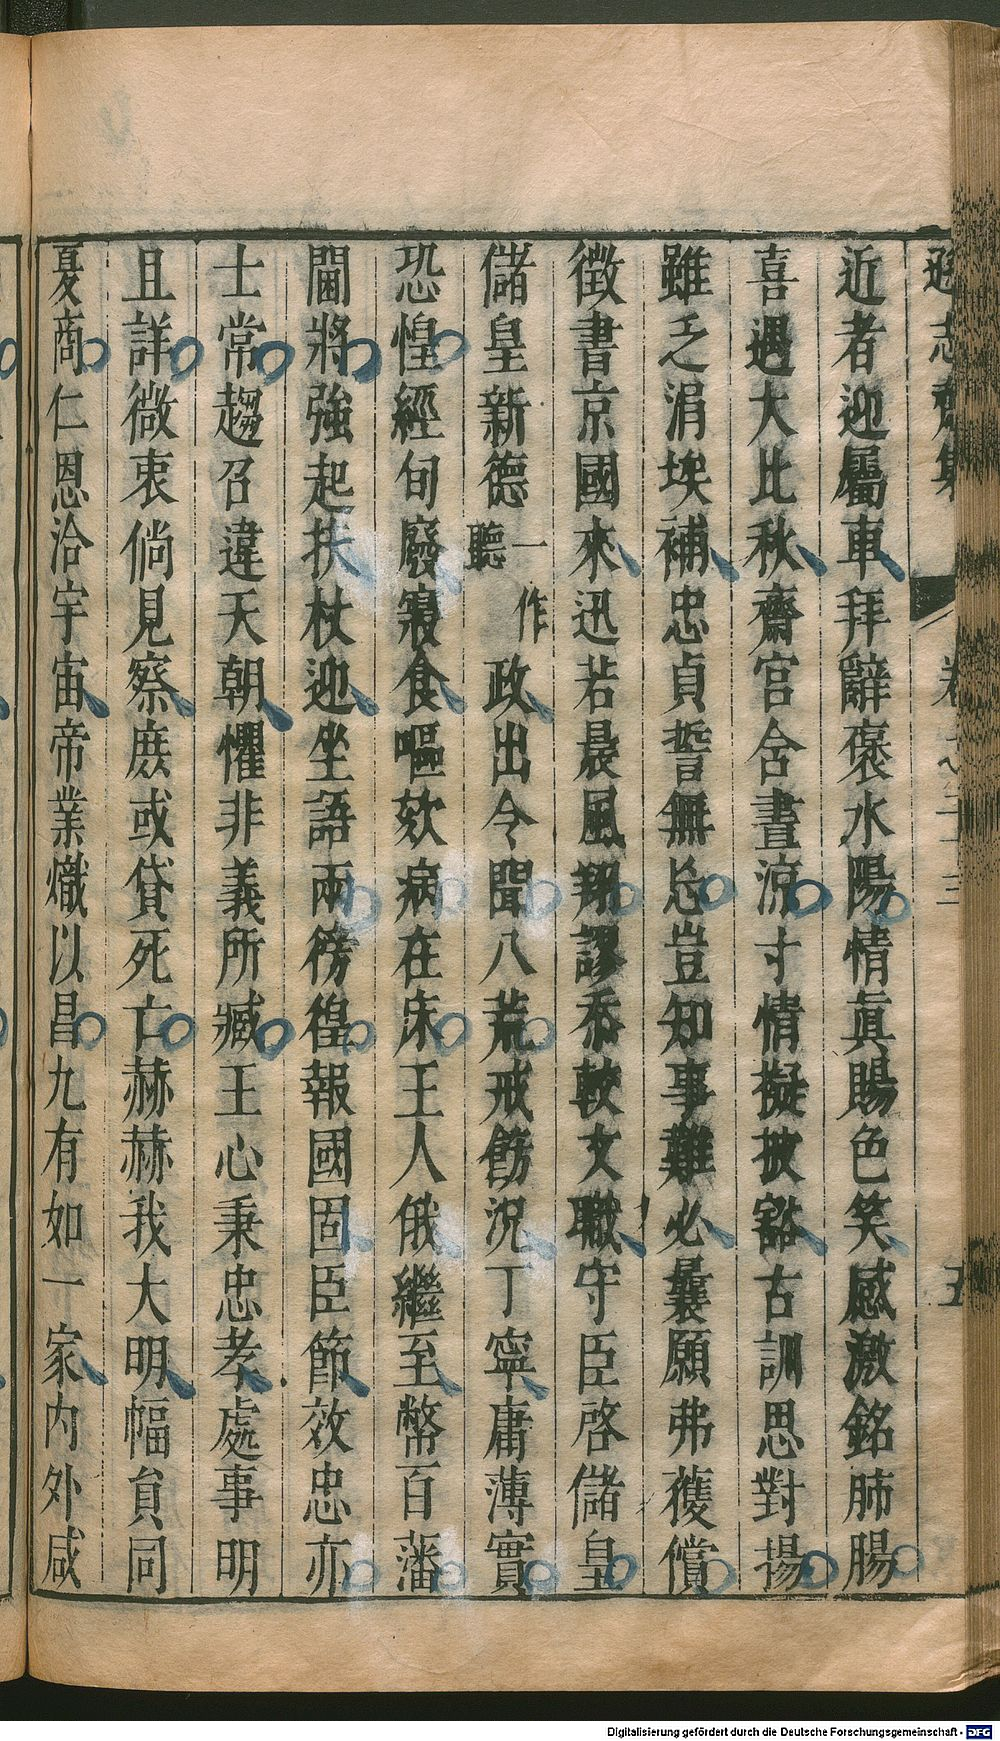 遜志齋集 卷之二十三 五
近者迎屬車拜辭褒水陽情眞賜色笑感激銘肺腸
喜遇大比秋齋宮舍晝涼寸情擬披豁古訓思對揚
雖乏涓埃補忠貞誓無忘豈知事難必曩願弗獲償
徵書京國來迅若晨風翔謬忝較文職守臣啓儲皇
儲皇新德一作聽政出令聞八荒戒飭況丁寧庸薄實
恐惶經旬廢寢食嘔欬病在床王人俄繼至幣百藩
閫將強起扶杖迎坐語兩徬徨報國固臣節效忠亦
士常趨召違天朝懼非義所臧王心秉忠孝處事明
且詳微衷倘見察庶或貸死亡赫赫我大明幅員同
夏商仁恩洽宇宙帝業熾以昌九有如一家內外咸
Digitalisierung gefördert durch die Deutsche Forschungsgemeinschaft - DFG